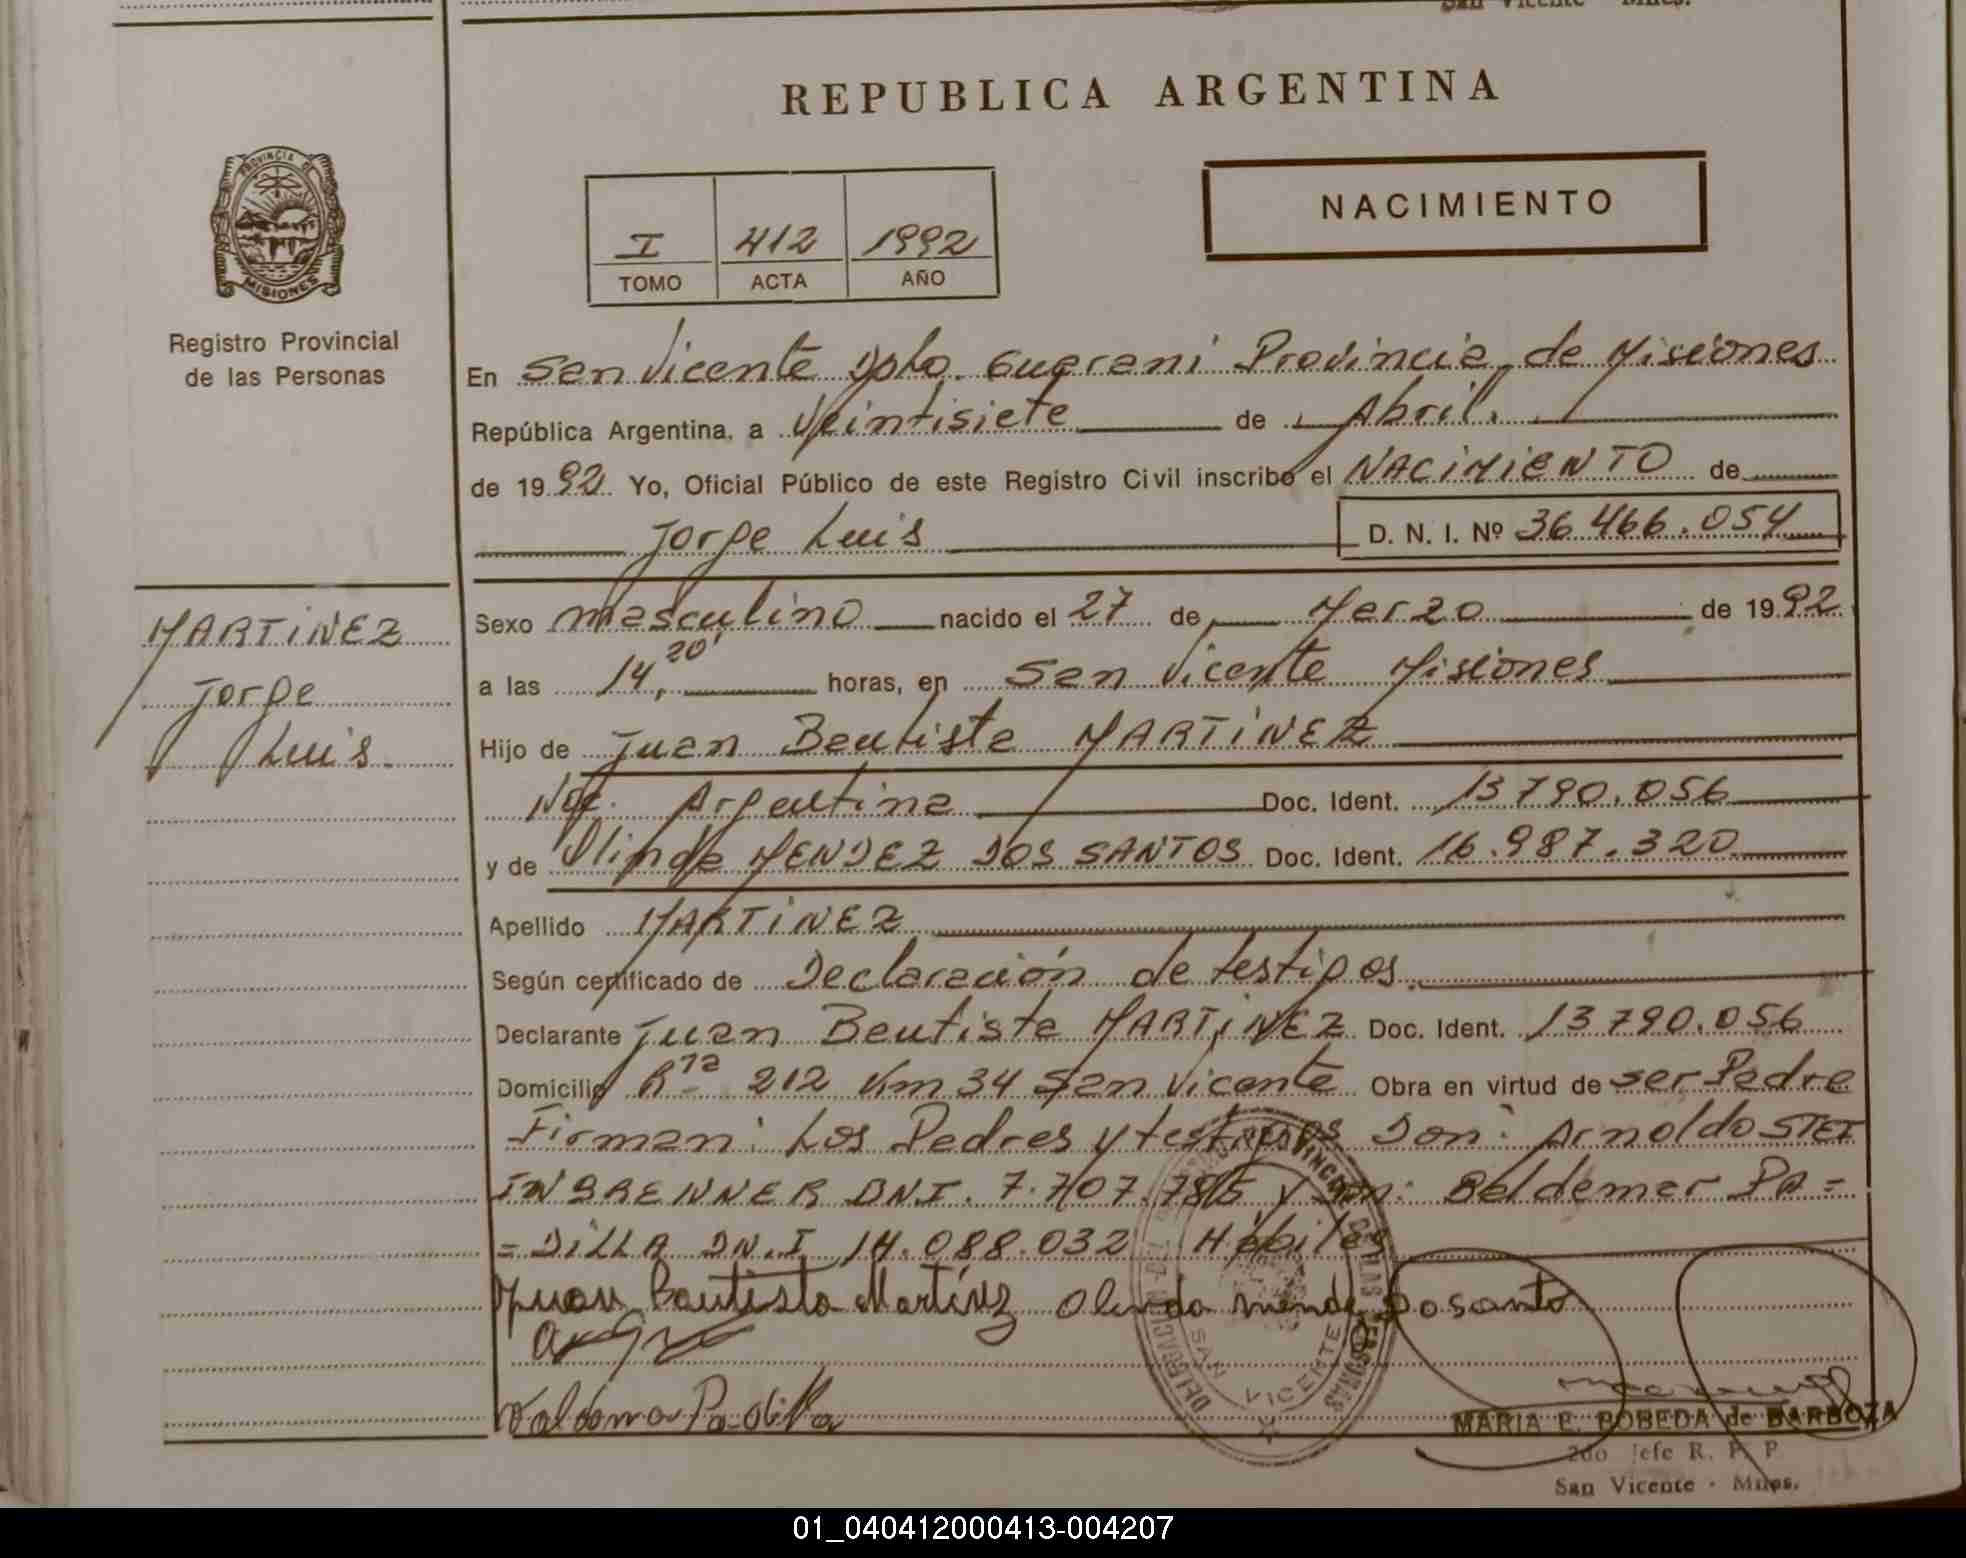 San Vicente Mnes.
REPUBLICA ARGENTINA
PROVINCIA DE
MISIONES
Registro Provincial
de las Personas
I 412 1992
TOMO ACTA AÑO
NACIMIENTO
En San Vicente Dpto. Guarani Provincia de Misiones
República Argentina, a Veintisiete de Abril.
de 1992. Yo, Oficial Público de este Registro Civil inscribo el NACIMIENTO de
Jorge Luis D. N. I. Nº 36.466.054
MARTINEZ
Jorge
Luis.
Sexo masculino nacido el 27 de Marzo de 1992.
a las 14,20' horas, en San Vicente Misiones
Hijo de Juan Bautista MARTINEZ
Nac. Argentina Doc. Ident. 13.790.056
y de Olinda MENDEZ DOS SANTOS Doc. Ident. 16.987.320
Apellido MARTINEZ
Según certificado de Declaración de testigos.
Declarante Juan Bautista MARTINEZ Doc. Ident. 13.790.056
Domicilio Rta 212 Km 34 San Vicente Obra en virtud de ser Padre
Firman: Los Padres y testigos Don: Arnoldo STEI
INBRENNER DNI. 7.707.785 y Don: Baldemar PA=
=DILLA DN.I 14.088.032 Hábiles
Juan Bautista Martinez Olinda mende Dosanto
Valdemar Padilla
DELEGACION SAN VICENTE
MARIA E. POBEDA de BARBOZA
2do Jefe R. P. P.
San Vicente - Mnes.
01_040412000413-004207